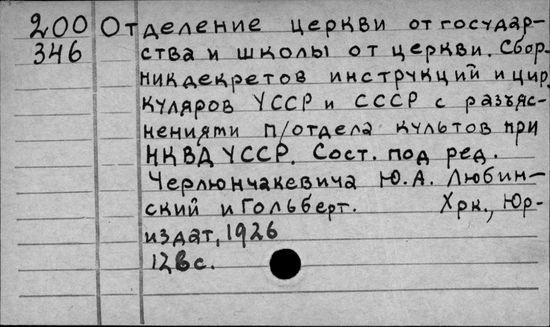 200 Отделение церкви от государ-
346 ства и школы от церкви. Сбор-
ник декретов инструкций и цир
куляров УССР и СССР с разъяс-
нениями п/отдела культов при
НКВД УССР. Сост. под ред.
Черлюнчакевича Ю.А. Любин-
ский и Гольберт. Хрк., Юр-
издат, 1926
128 с.